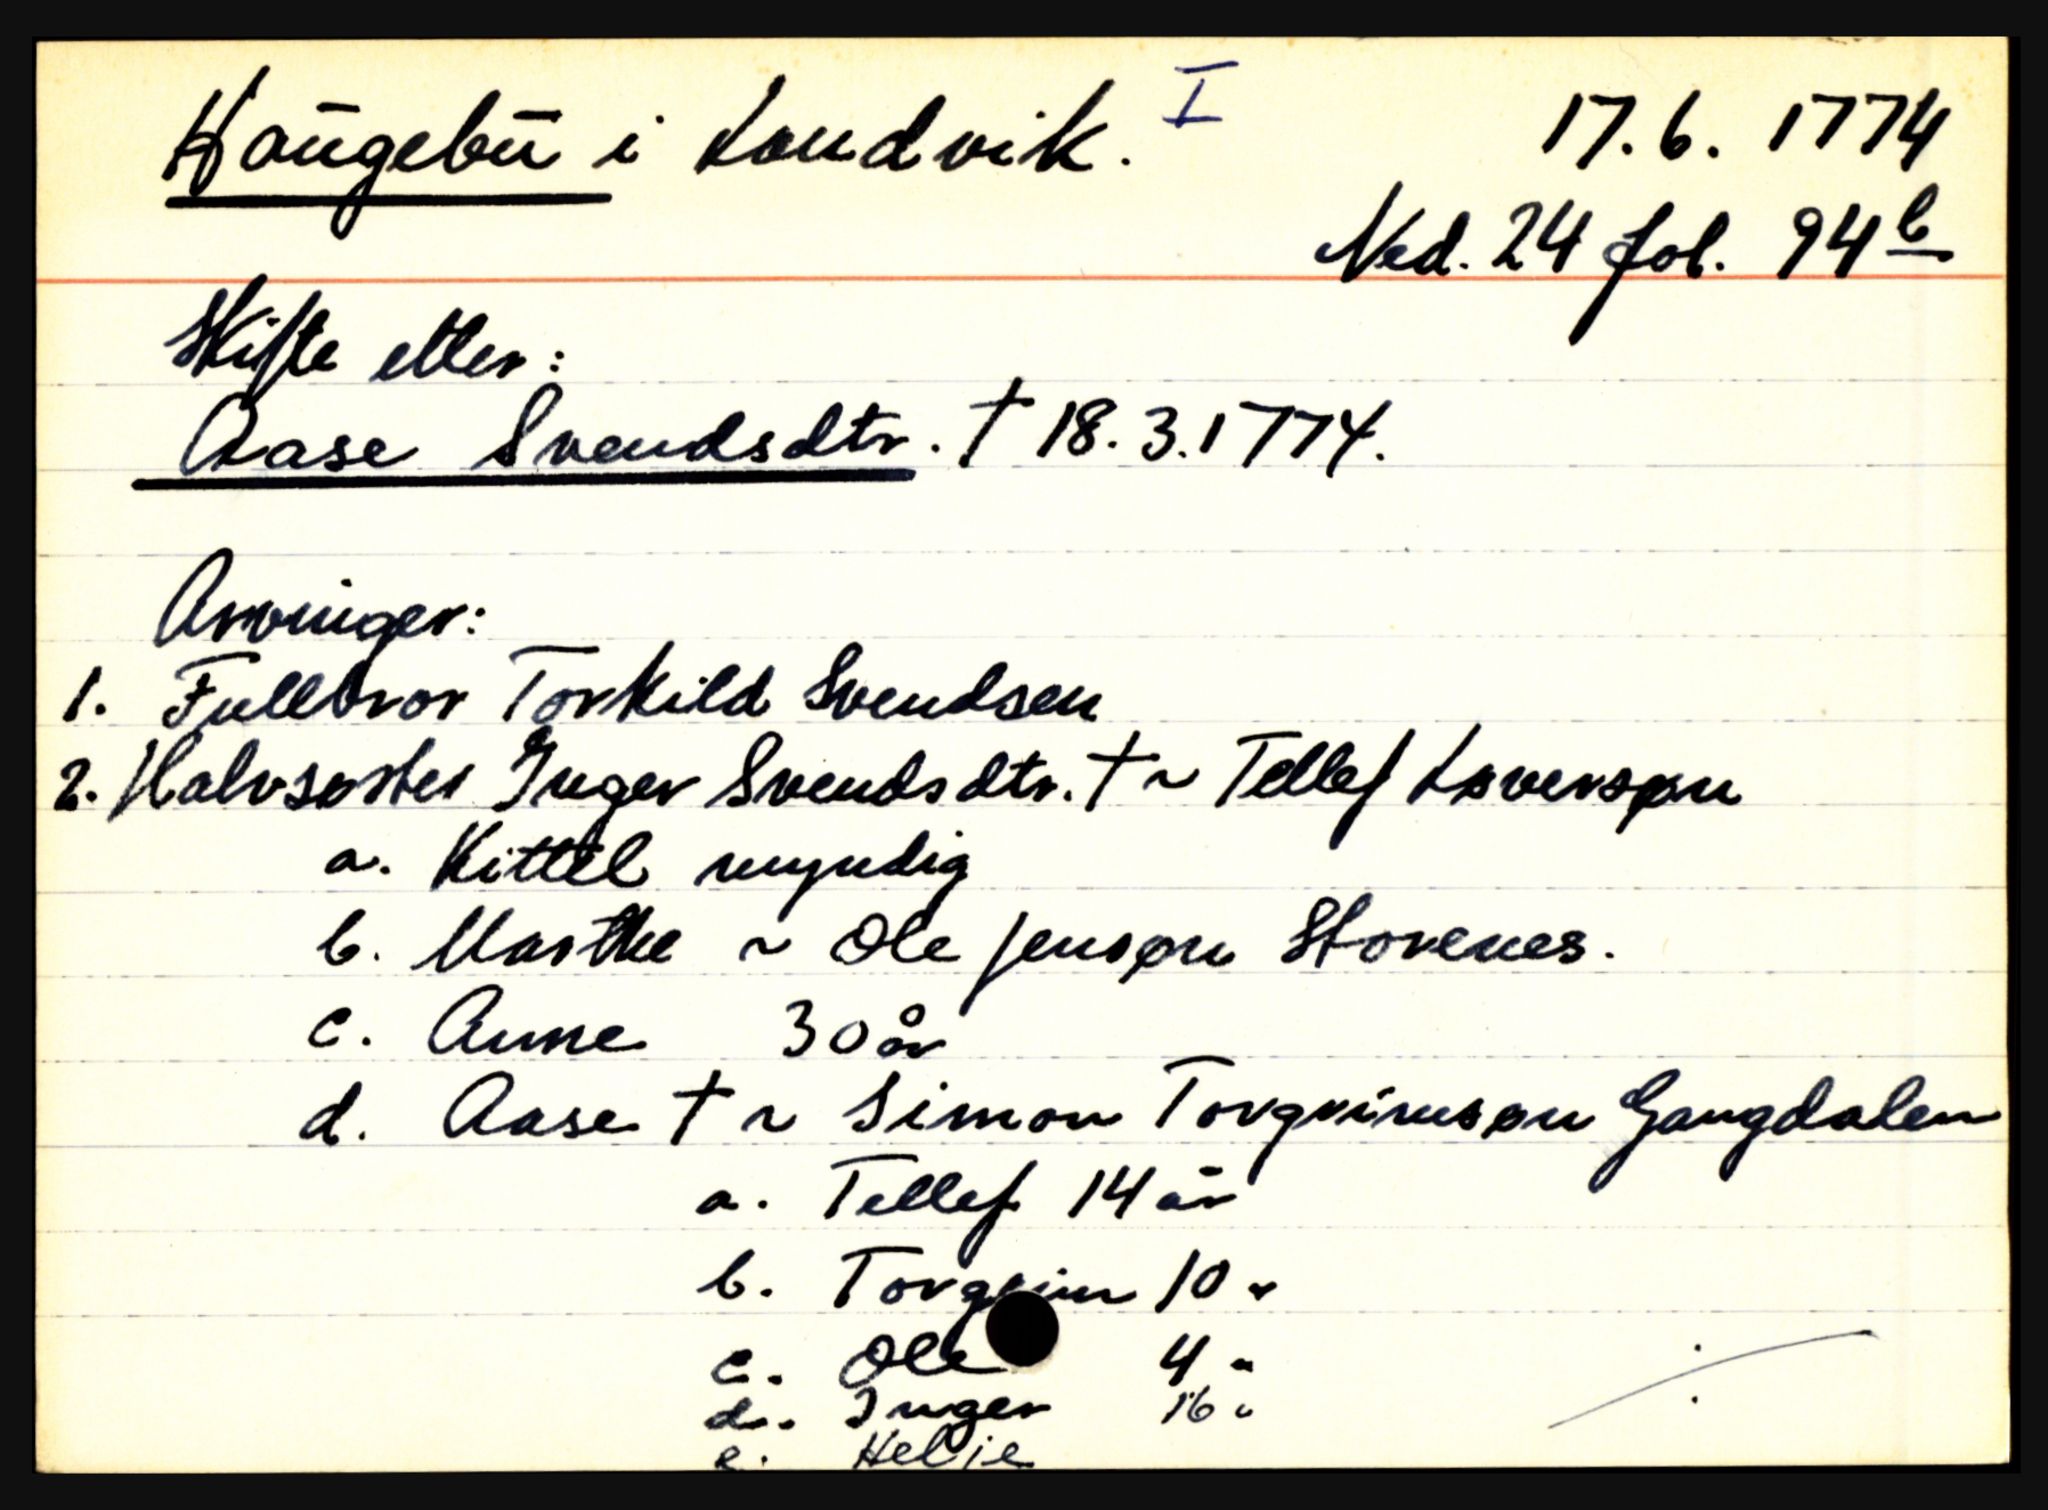 Haugebu i Landvik. I 17.6. 1774
Ned. 24 fol. 94 b
Skifte etter:
Aase Svendsdtr. † 18.3.1774.
Arvinger:
1. Fullbror Torkild Svendsen
2. Halvsøster Inger Svendsdtr. † ~ Tellef Laversøn
a. Kittel myndig
b. Marthe ~ Ole Jensøn Storenes.
c. Anne 30 år
d. Aase † ~ Simon Torgrimsøn Gangdalen
a. Tellef 14 år
b. Torgrim 10 "
c. Ole 4 "
d. Inger 16 "
e. Helje
./.